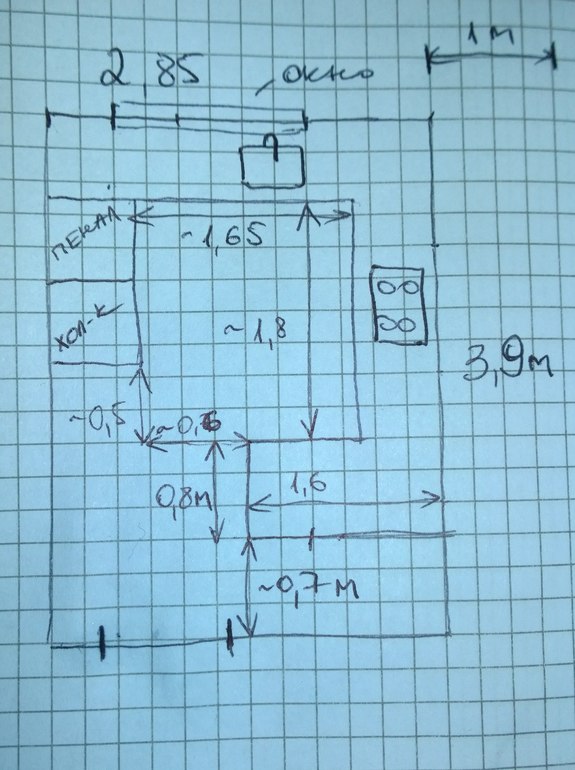 1м
2,85 окно
ПЕНАЛ
~1,65
~1,8
ХОЛ-К
3,9м
~0,5 ~0,6
0,8м
1,6
~0,7м